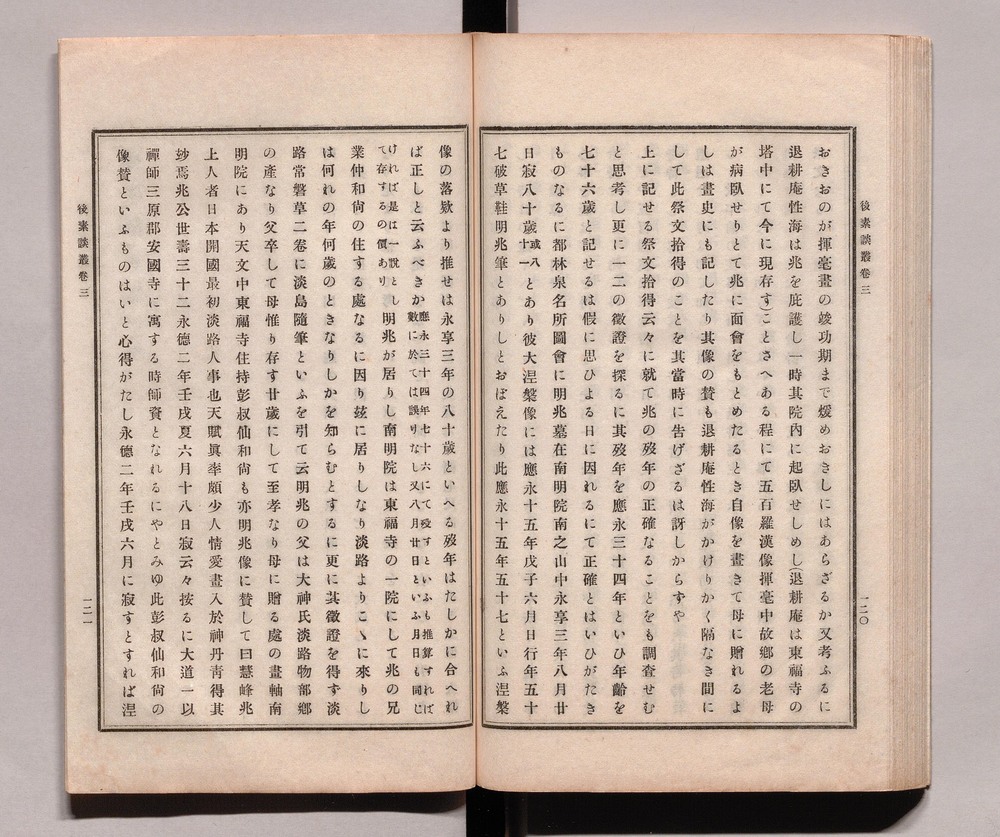 後素談叢卷三
一二〇
おきおのが揮毫畫の竣功期まで煖めおきしにはあらざるか又考ふるに
退耕庵性海は兆を庇護し一時其院內に起臥せしめし(退耕庵は東福寺の
塔中にて今に現存す)ことさへある程にて五百羅漢像揮毫中故鄉の老母
が病臥せりとて兆に面會をもとめたるとき自像を畫きて母に贈れるよ
しは畫史にも記したり其像の賛も退耕庵性海がかけりかく隔なき間に
して此祭文拾得のことを其當時に告げざるは訝しからずや
上に記せる祭文拾得云々に就て兆の歿年の正確なることをも調査せむ
と思考し更に一二の徵證を探るに其歿年を應永三十四年といひ年齡を
七十六歲と記せるは假に思ひよる日に因れるにて正確とはいひがたき
ものなるに都林泉名所圖會に明兆墓在南明院南之山中永享三年八月廿
日寂八十歲或八十一とあり彼大涅槃像には應永十五年戊子六月日行年五十
七破草鞋明兆筆とありしとおぼえたり此應永十五年五十七といふ涅槃
像の落欵より推せは永享三年の八十歲といへる歿年はたしかに合へれ
ば正しと云ふべきか應永三十四年七十六にて歿すといふも推算すれば數に於ては誤りなし又八月廿日といふ月日も同じ
ければ是は一說として存するの價あり明兆が居りし南明院は東福寺の一院にして兆の兄
業仲和尙の住する處なるに因り玆に居りしなり淡路よりこゝに來りし
は何れの年何歲のときなりしかを知らむとするに更に其徵證を得ず淡
路常磐草二卷に淡島隨筆といふを引て云明兆の父は大神氏淡路物部鄉
の產なり父卒して母惟り存す廿歲にして至孝なり母に贈る處の畫軸南
明院にあり天文中東福寺住持彭叔仙和尙も亦明兆像に賛して曰慧峰兆
上人者日本開國最初淡路人事也天賦眞率頗少人情愛畫入於神丹靑得其
玅焉兆公世壽三十二永德二年壬戌夏六月十八日寂云々按るに大道一以
禪師三原郡安國寺に寓する時師資となれるにやとみゆ此彭叔仙和尙の
像賛といふものはいと心得がたし永德二年壬戌六月に寂すとすれば涅
後素談叢卷三
一二一